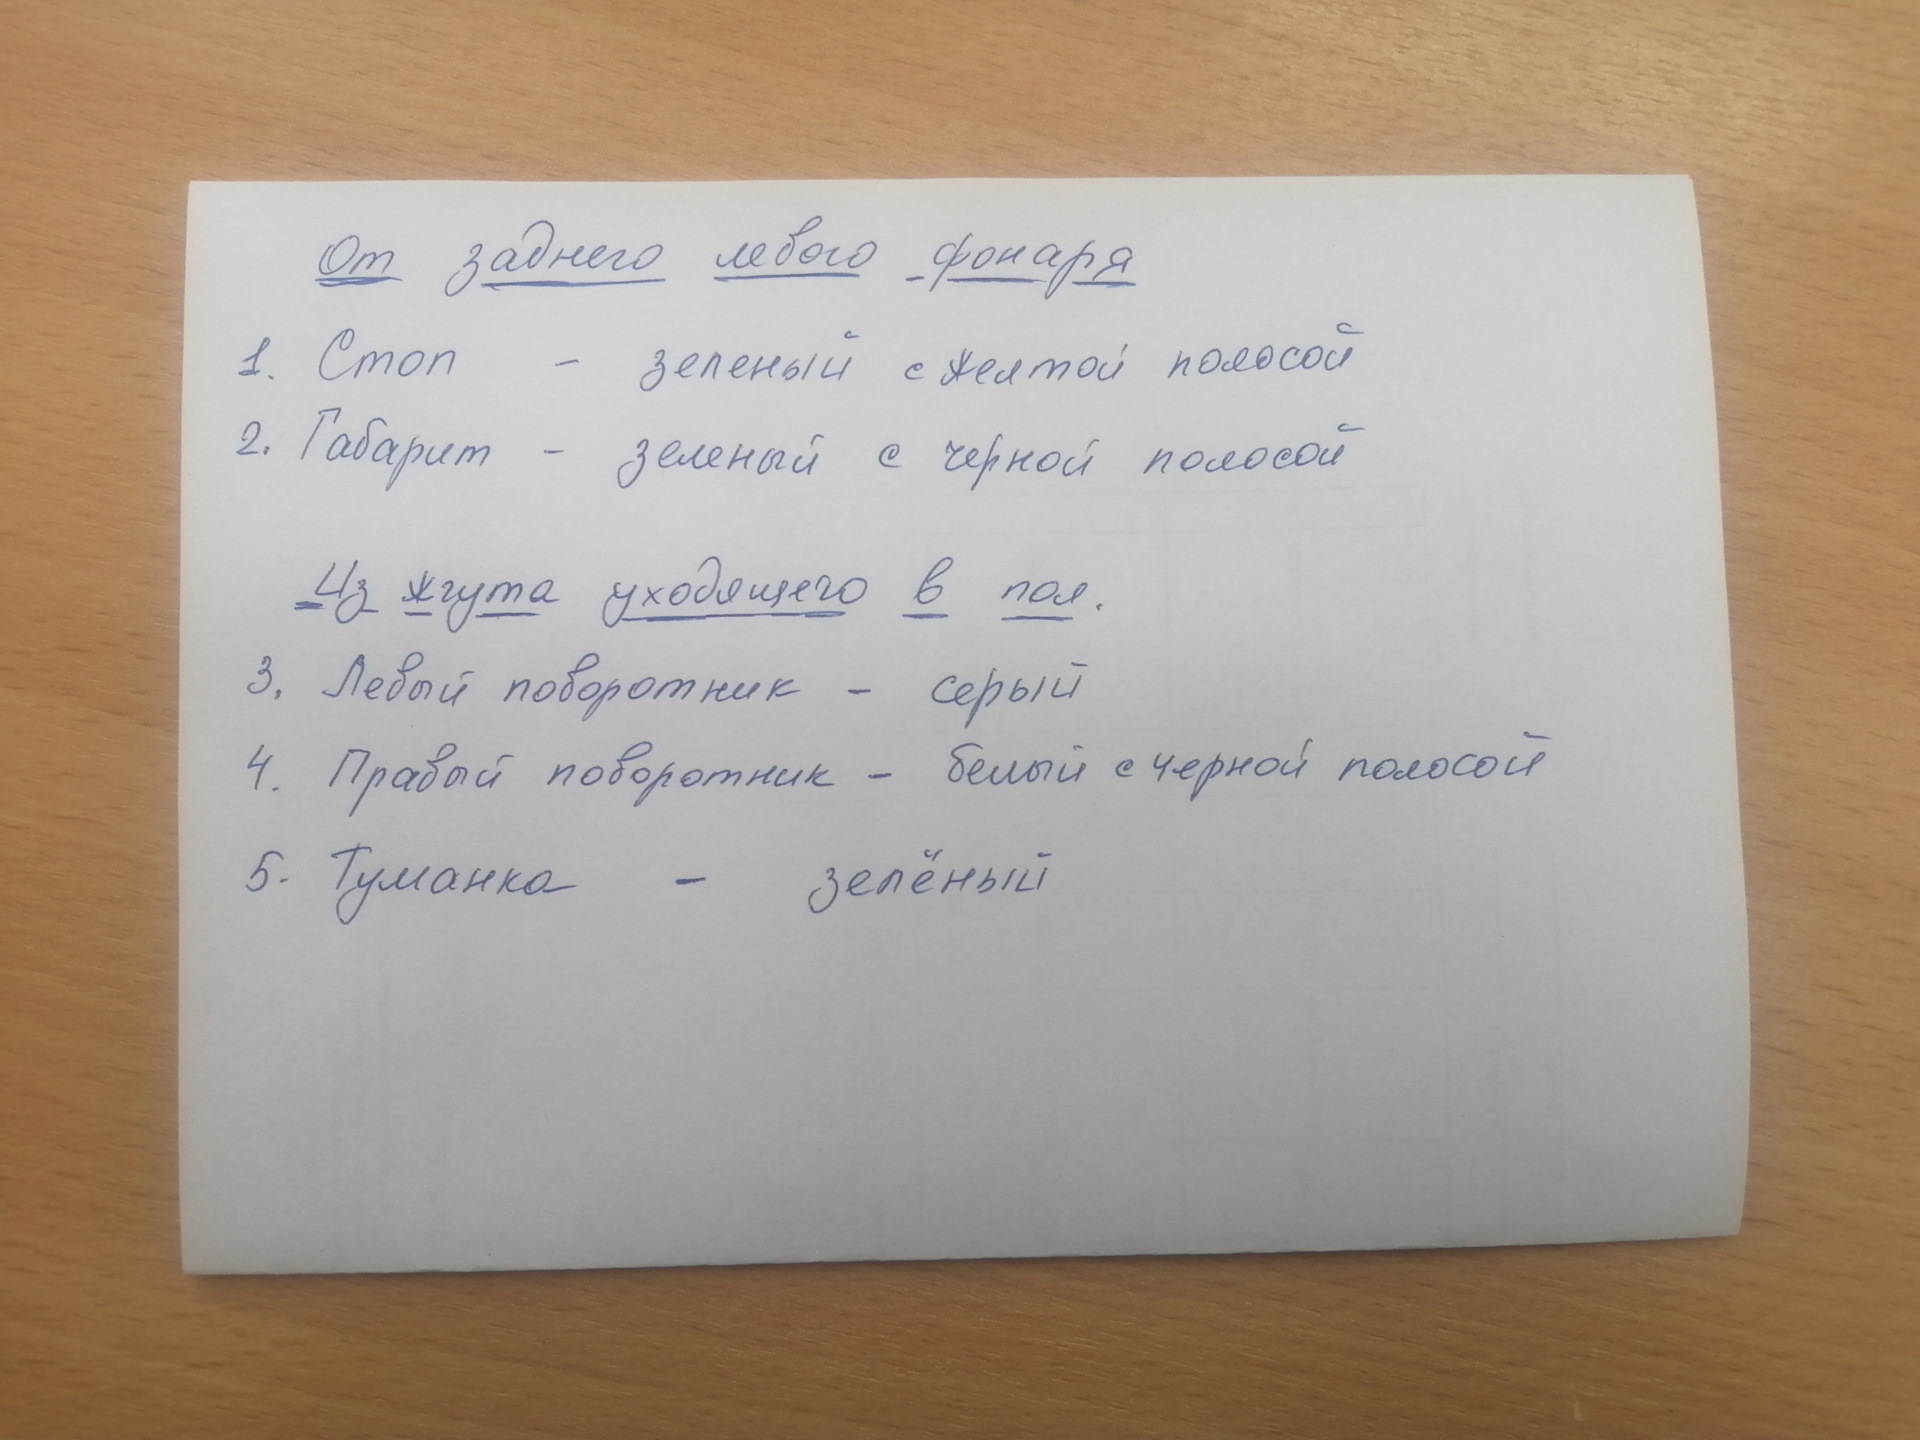 От заднего левого фонаря
1. Стоп - зеленый с желтой полосой
2. Габарит - зеленый с черной полосой
Из жгута уходящего в пол.
3. Левый поворотник - серый
4. Правый поворотник - белый с черной полосой
5. Туманка - зелёный